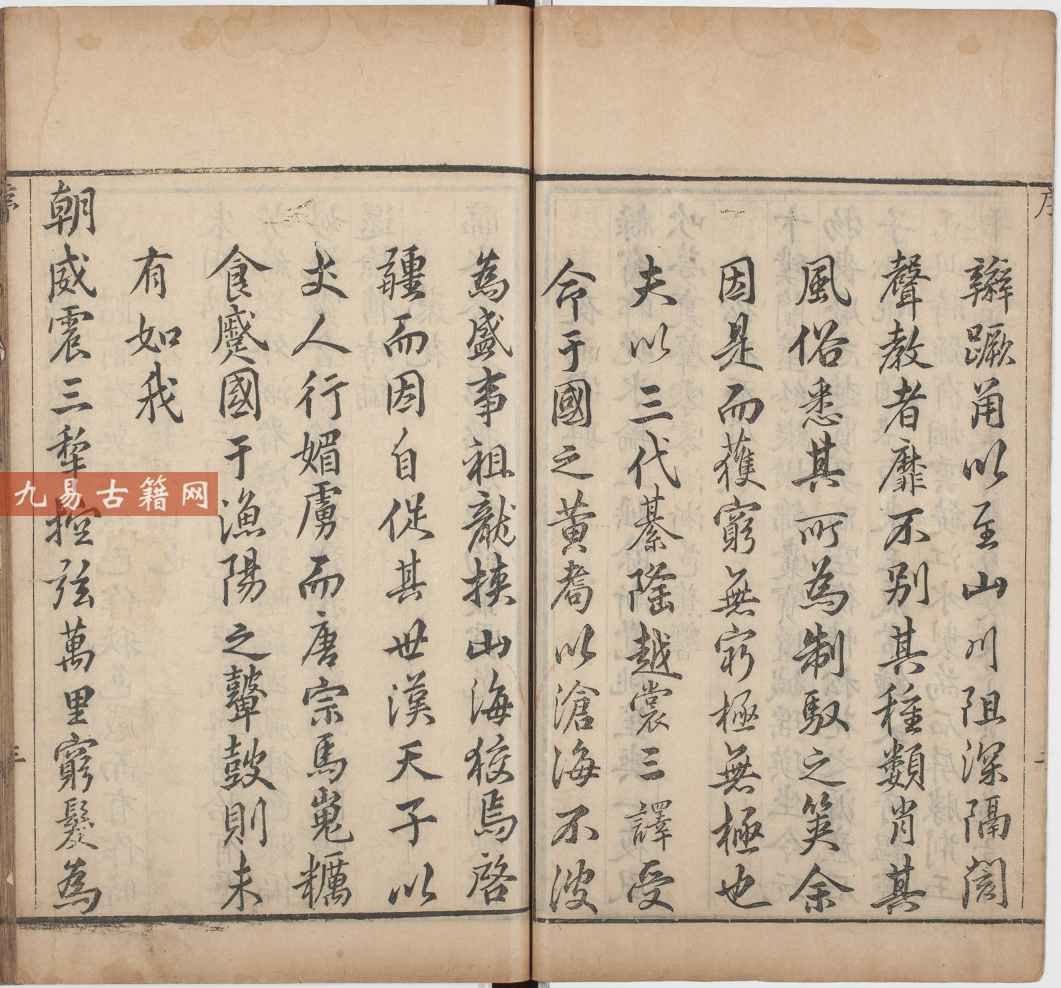 辮蹶角以至山川阻深隔閡
聲教者靡不别其種類肖其
風俗悉其所為制馭之筴余
因是而獲窮無窮極無極也
夫以三代綦隆越裳三譯受
命于國之黃耇以滄海不波
為盛事祖龍挾山海狡焉啓
疆而因自促其世漢天子以
丈人行媚虜而唐宗馬嵬糲
食蹙國于漁陽之鼙鼓則未
有如我
朝威震三犂控弦萬里窮髮為
序
九易古籍网